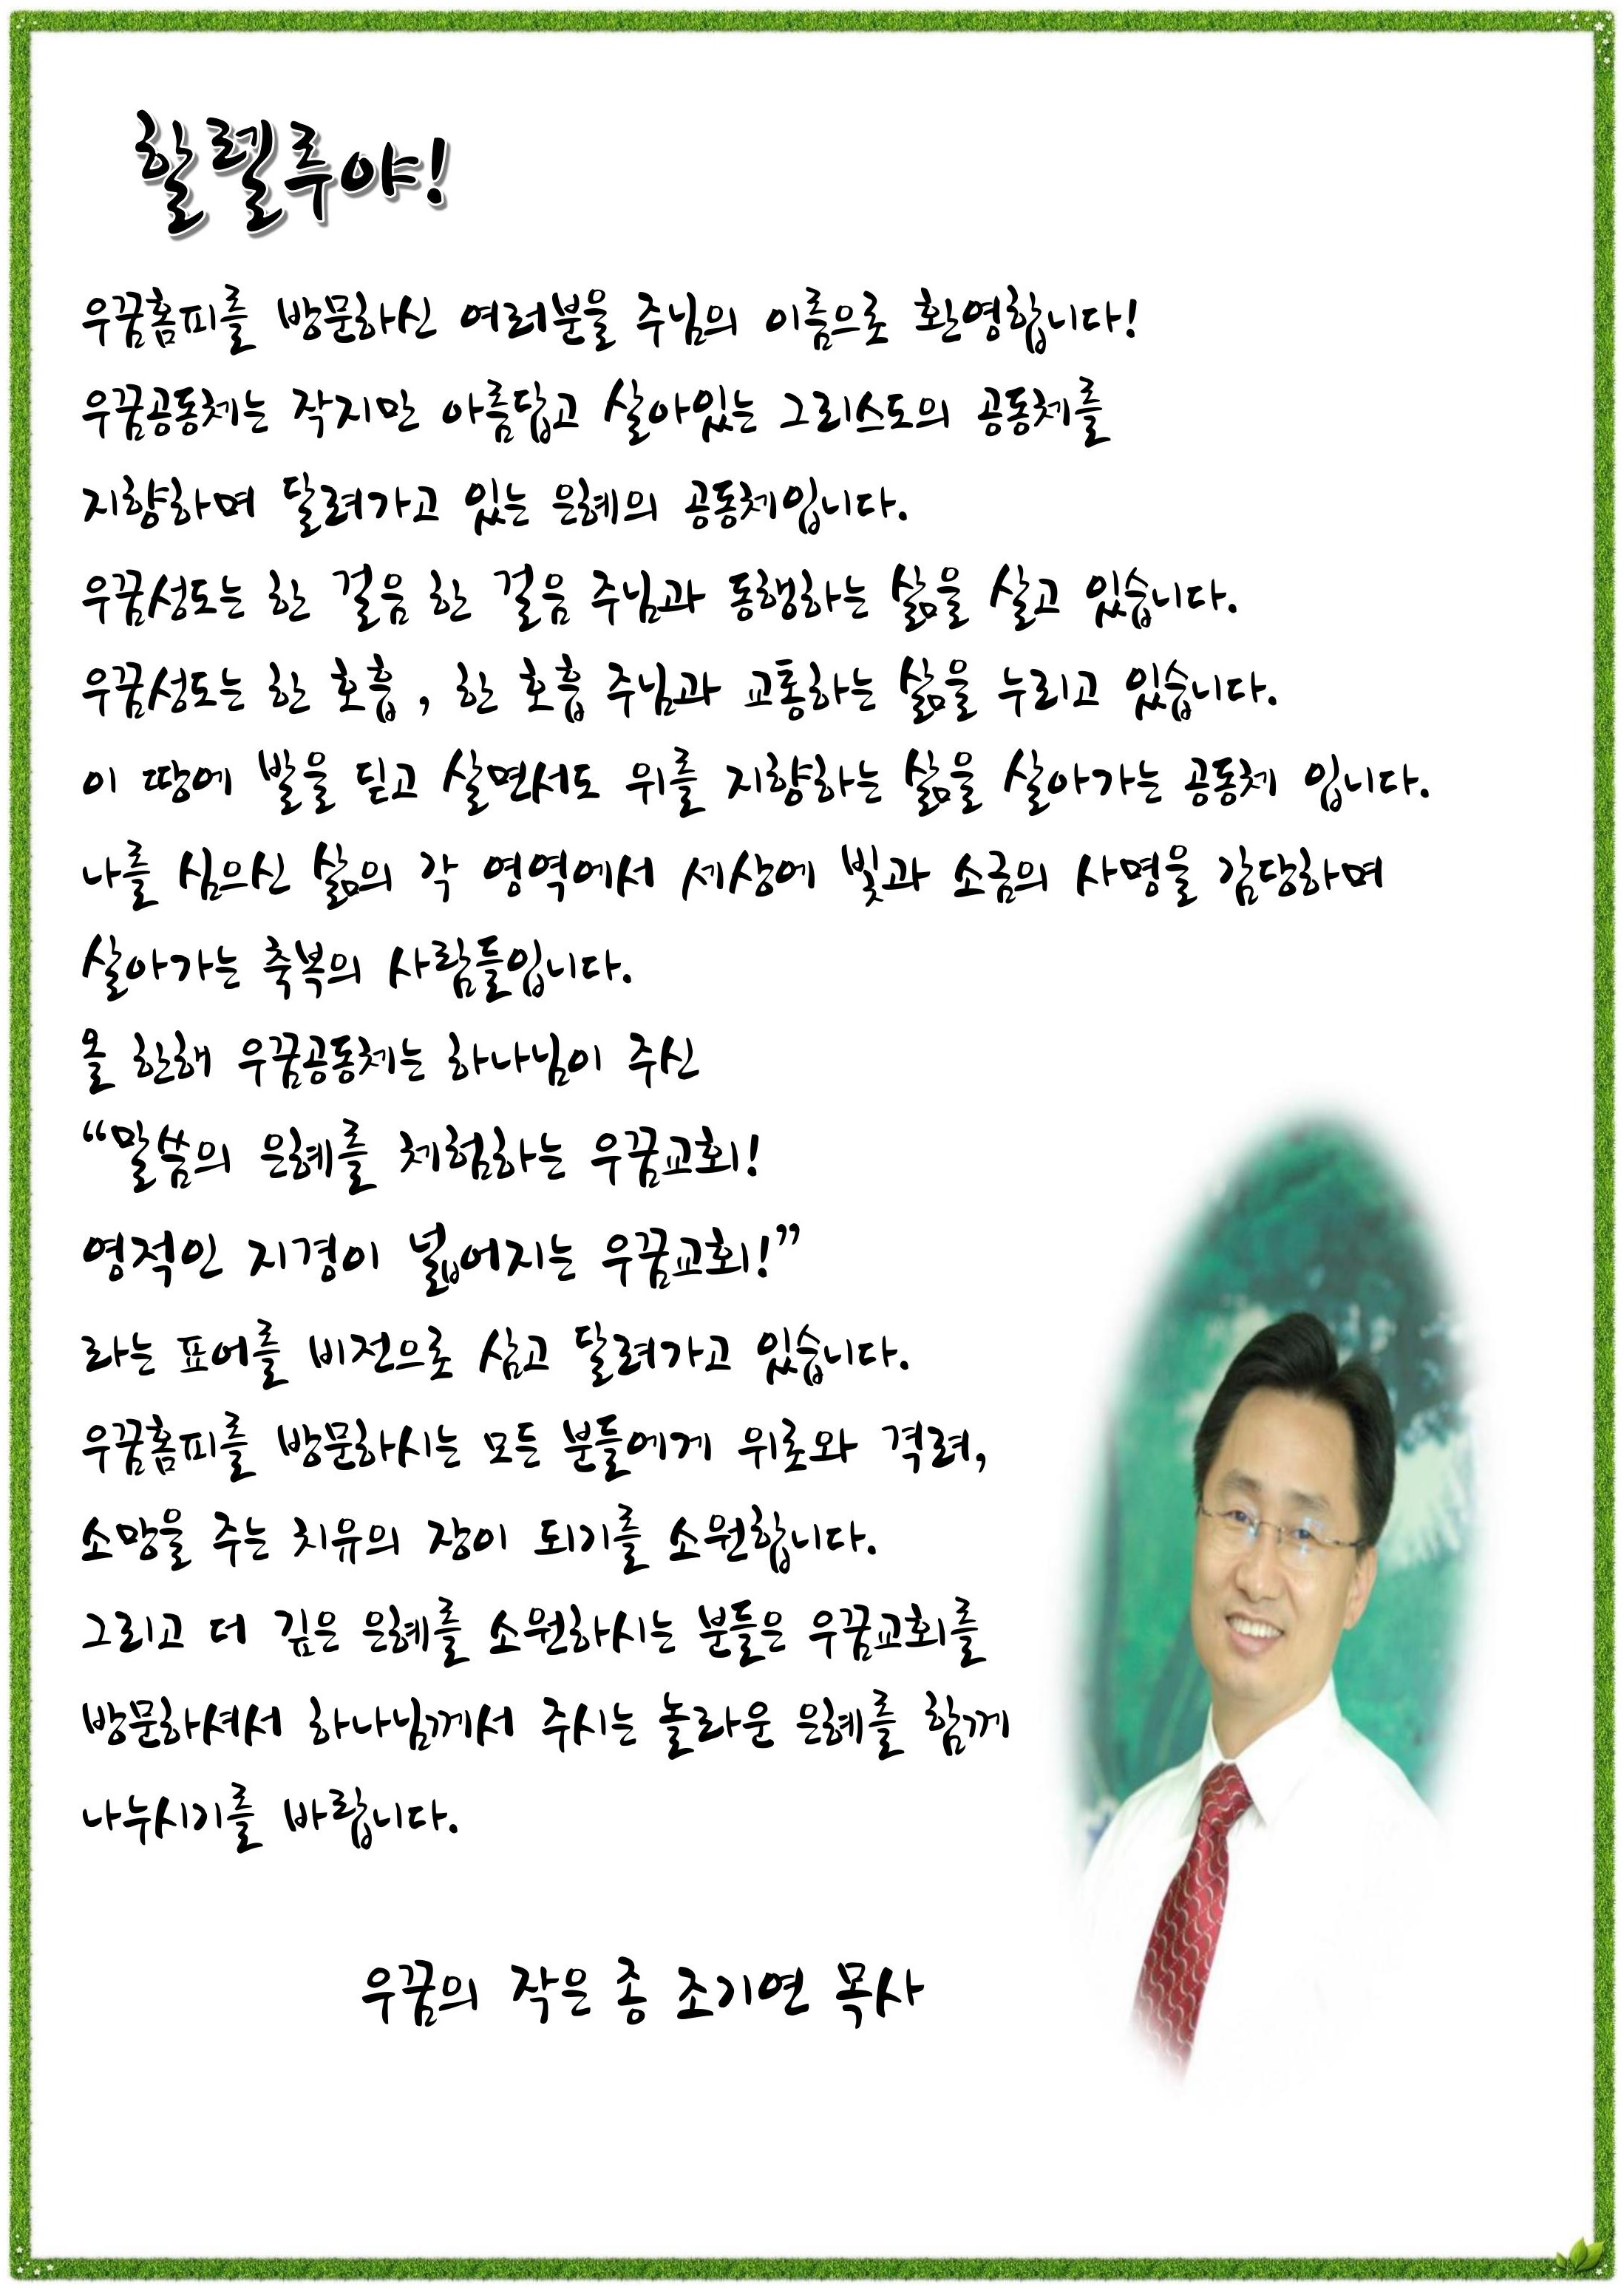 할렐루야!
우꿈홈피를 방문하신 여러분을 주님의 이름으로 환영합니다!
우꿈공동체는 작지만 아름답고 살아있는 그리스도의 공동체를
지향하며 달려가고 있는 은혜의 공동체입니다.
우꿈성도는 한 걸음 한 걸음 주님과 동행하는 삶을 살고 있습니다.
우꿈성도는 한 호흡 , 한 호흡 주님과 교통하는 삶을 누리고 있습니다.
이 땅에 발을 딛고 살면서도 위를 지향하는 삶을 살아가는 공동체 입니다.
나를 심으신 삶의 각 영역에서 세상에 빛과 소금의 사명을 감당하며
살아가는 축복의 사람들입니다.
올 한해 우꿈공동체는 하나님이 주신
“말씀의 은혜를 체험하는 우꿈교회!
영적인 지경이 넓어지는 우꿈교회!”
라는 표어를 비전으로 삼고 달려가고 있습니다.
우꿈홈피를 방문하시는 모든 분들에게 위로와 격려,
소망을 주는 치유의 장이 되기를 소원합니다.
그리고 더 깊은 은혜를 소원하시는 분들은 우꿈교회를
방문하셔서 하나님께서 주시는 놀라운 은혜를 함께
나누시기를 바랍니다.
우꿈의 작은 종 조기연 목사